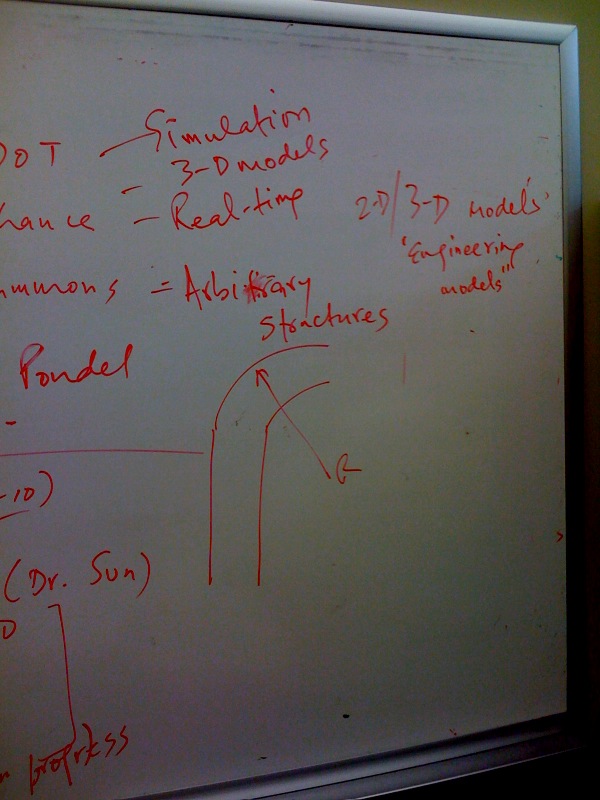 DOT - Simulation
3-D models
hance - Real-time
mmons = Arbitrary
structures
2-D/3-D models'
'Engineering
models"
Pondel
-
R
-10)
(Dr. Sun)
D
progress